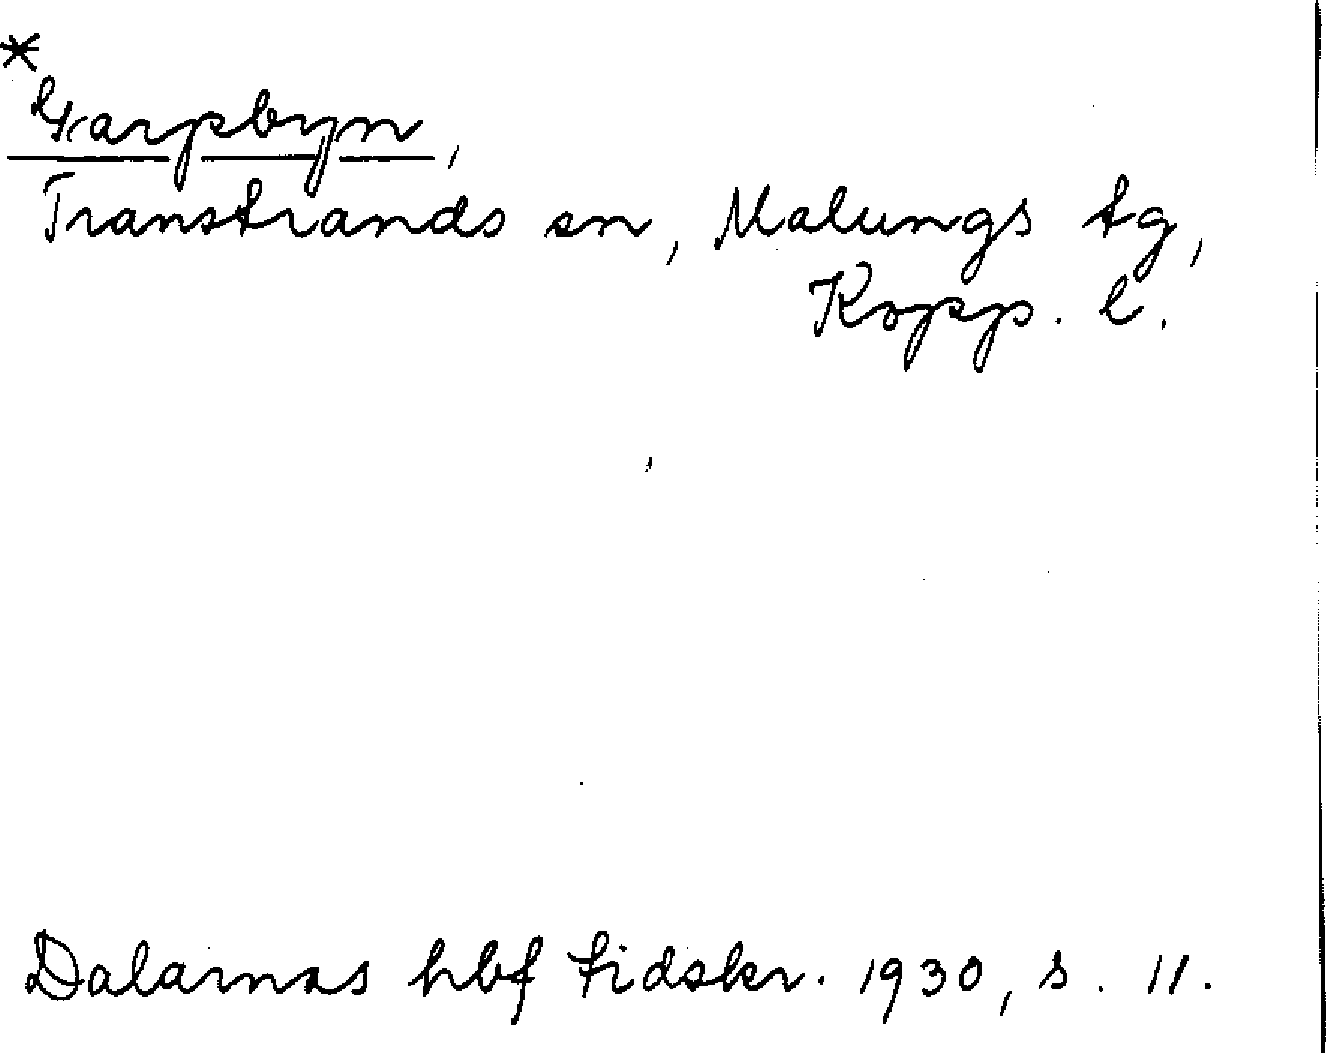 *
Garpbyn,
Transtrands sn, Malungs tg,
Kopp. l.
Dalarnas hbf tidskr. 1930, s. 11.